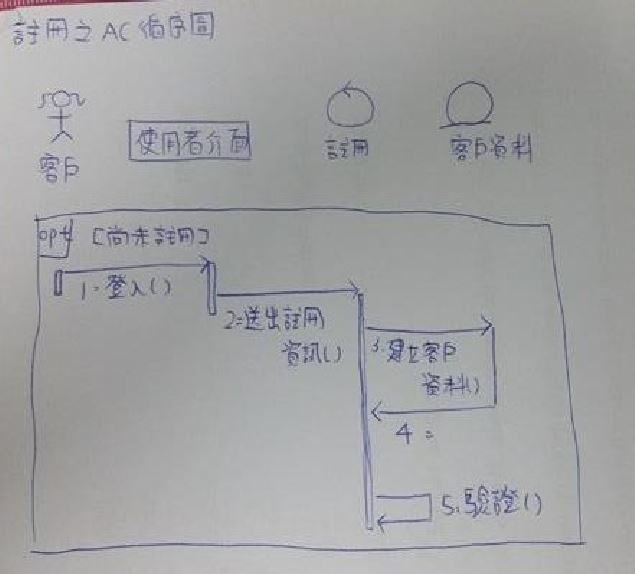 註冊之AC循序圖
客戶
使用者介面
註冊
客戶資料
opt [尚未註冊]
1:登入()
2:送出註冊
資訊()
3:建立客戶
資料()
4:
5:驗證()